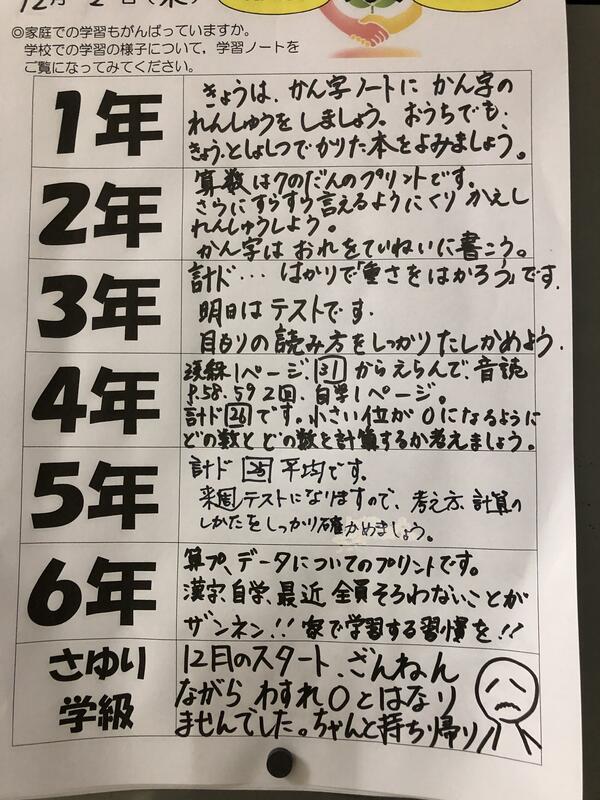 12月 2日(水)
◎家庭での学習もがんばっていますか。
学校での学習の様子について，学習ノートを
ご覧になってみてください。
1年
きょうは、かん字ノートに かん字の
れんしゅうをしましょう。おうちでも、
きょう、としょしつでかりた本をよみましょう。
2年
算数は7のだんのプリントです。
さらにすらすら言えるようにくりかえし
れんしゅうしよう。
かん字は おれをていねいに書こう。
3年
計ド… はかりで「重さをはかろう」です.
明日はテストです.
目もりの読み方をしっかりたしかめよう.
4年
漢練1ページ、31からえらんで、音読
P.58.59 2回. 自学1ページ。
計ド26です。小さい位が0になるように
どの数とどの数を計算するか考えましょう。
5年
計ド 25 平均です.
来週テストになりますので、考え方、計算の
しかたをしっかり確かめましょう。
6年
算プ、データについてのプリントです。
漢字、自学、最近 全員そろわないことが
ザンネン!! 家で学習する習慣を!!
さゆり
学級
12月のスタート、ざんねん
ながら わすれ0とはなり
ませんでした。ちゃんと持ち帰り